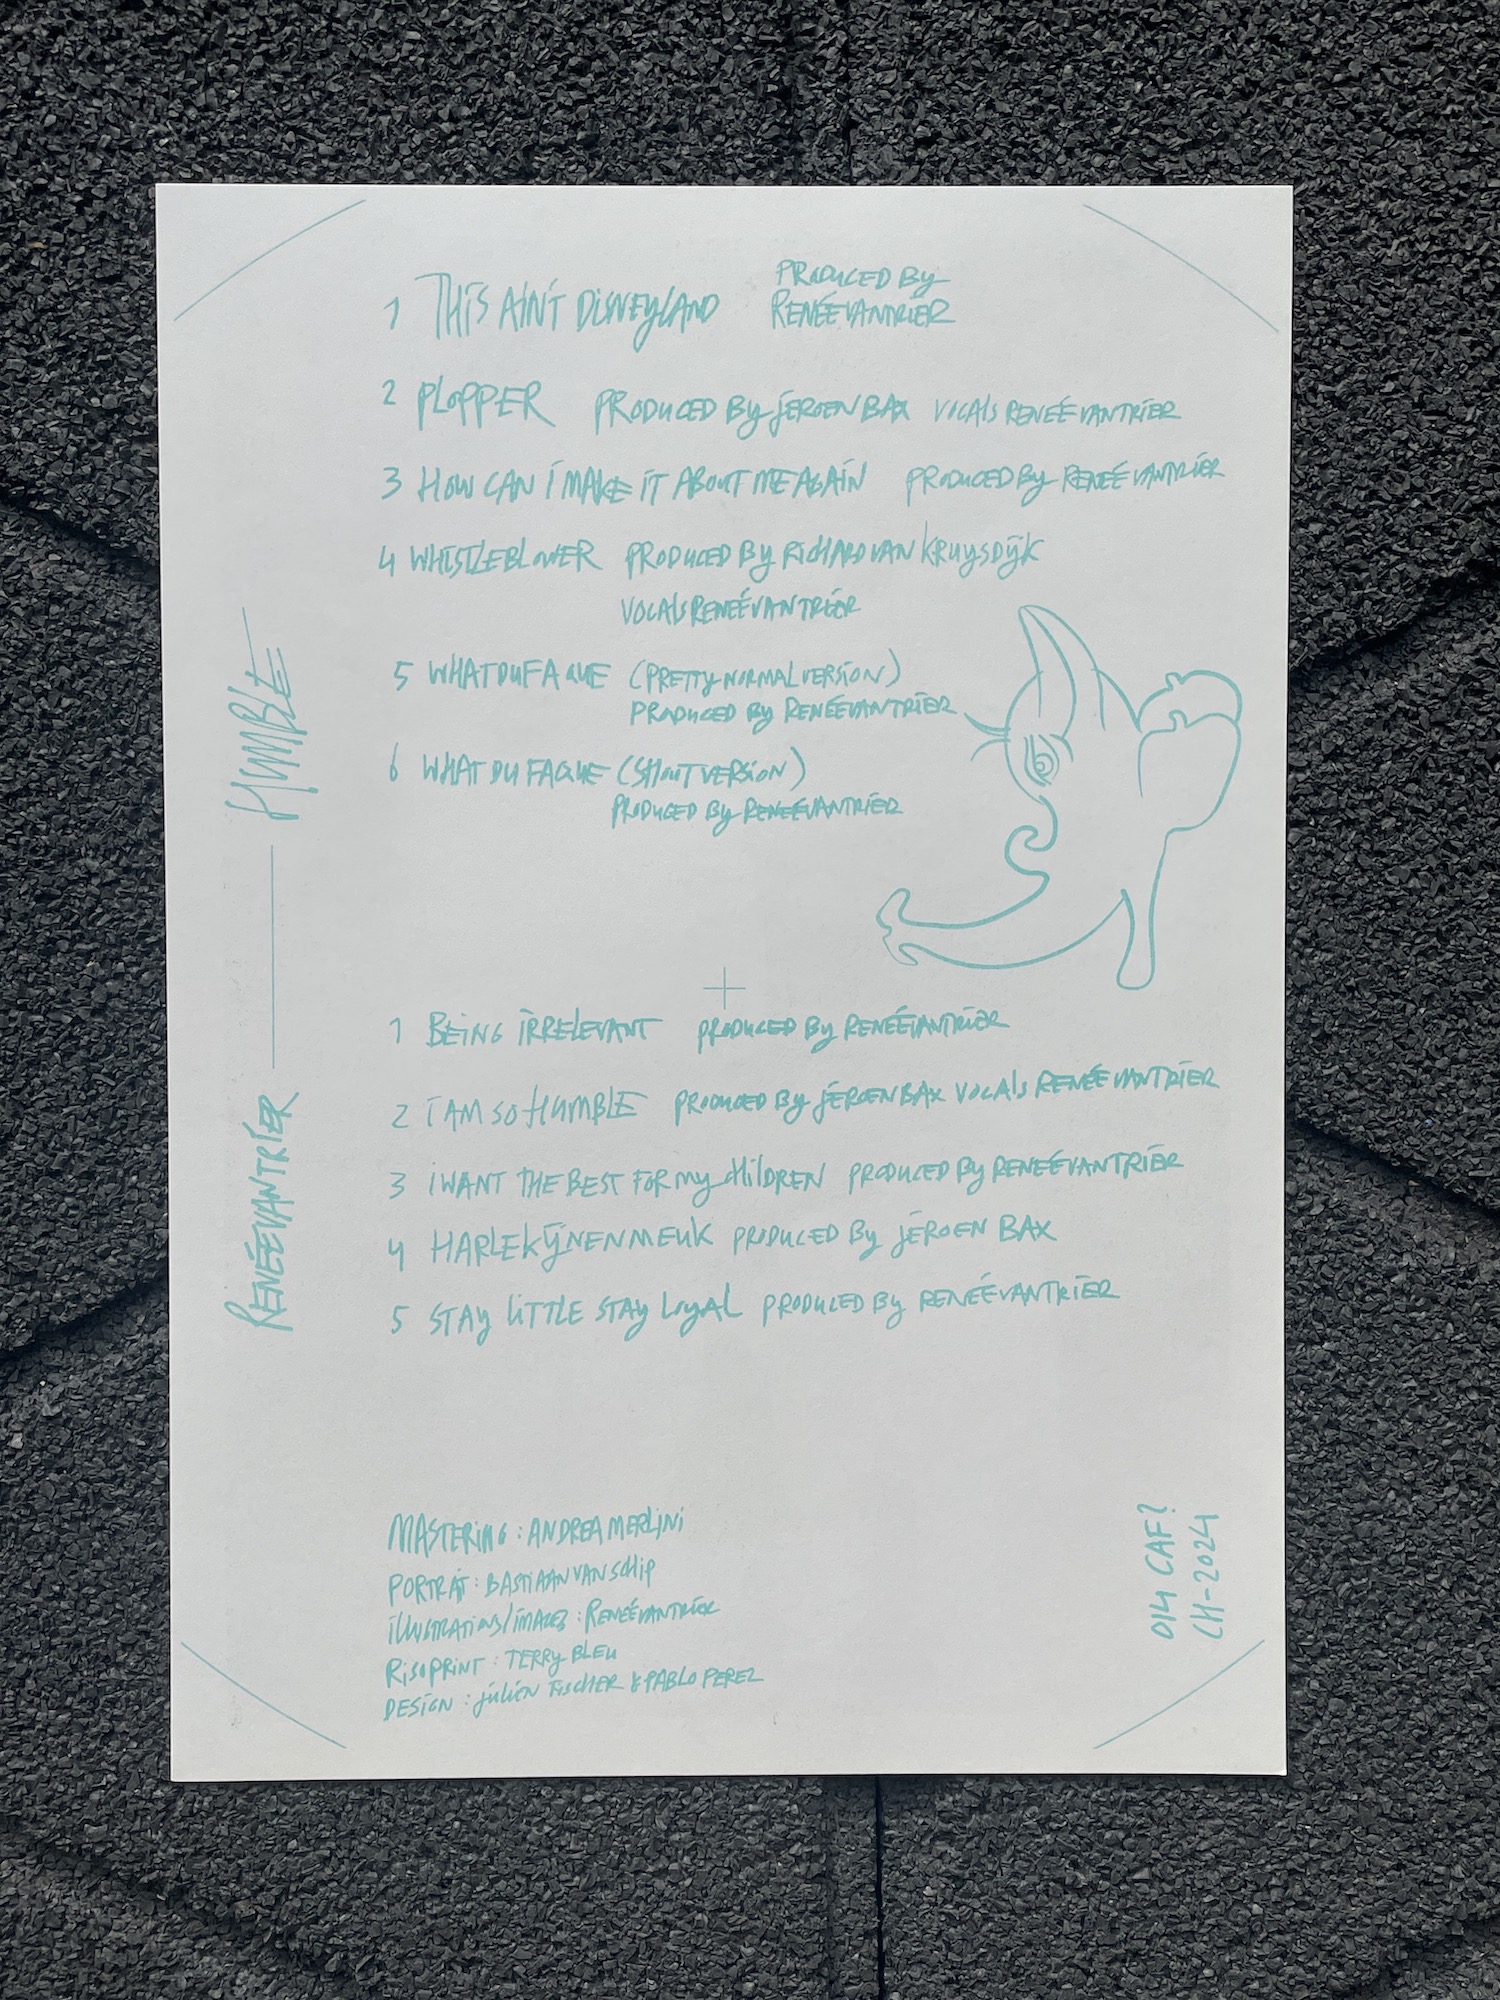 1 THIS AIN'T DISNEYLAND PRODUCED BY
RENÉEVANTRIER
2 PLOPPER PRODUCED BY JEROEN BAX VOCALS RENÉEVANTRIER
3 HOW CAN I MAKE IT ABOUT ME AGAIN PRODUCED BY RENÉEVANTRIER
4 WHISTLEBLOWER PRODUCED BY RICHARD VAN KRUYSDIJK
VOCALS RENÉEVANTRIER
5 WHAT DU FAQUE (PRETTY NORMAL VERSION)
PRODUCED BY RENÉEVANTRIER
6 WHAT DU FAQUE (SHOUT VERSION)
PRODUCED BY RENÉEVANTRIER
HUMBLE
RENÉEVANTRIER
1 BEING IRRELEVANT PRODUCED BY RENÉEVANTRIER
2 I AM SO HUMBLE PRODUCED BY JEROEN BAX VOCALS RENÉEVANTRIER
3 I WANT THE BEST FOR MY CHILDREN PRODUCED BY RENÉEVANTRIER
4 HARLEKIJNENMEUK PRODUCED BY JEROEN BAX
5 STAY LITTLE STAY LOYAL PRODUCED BY RENÉEVANTRIER
MASTERING : ANDREA MERLINI
PORTRAT : BASTIAAN VAN SCHIP
ILLUSTRATIONS/IMAGES : RENÉEVANTRIER
RISOPRINT : TERRY BLEU
DESIGN : JULIEN FISCHER & PABLO PEREZ
014 CAF?
CH-2024